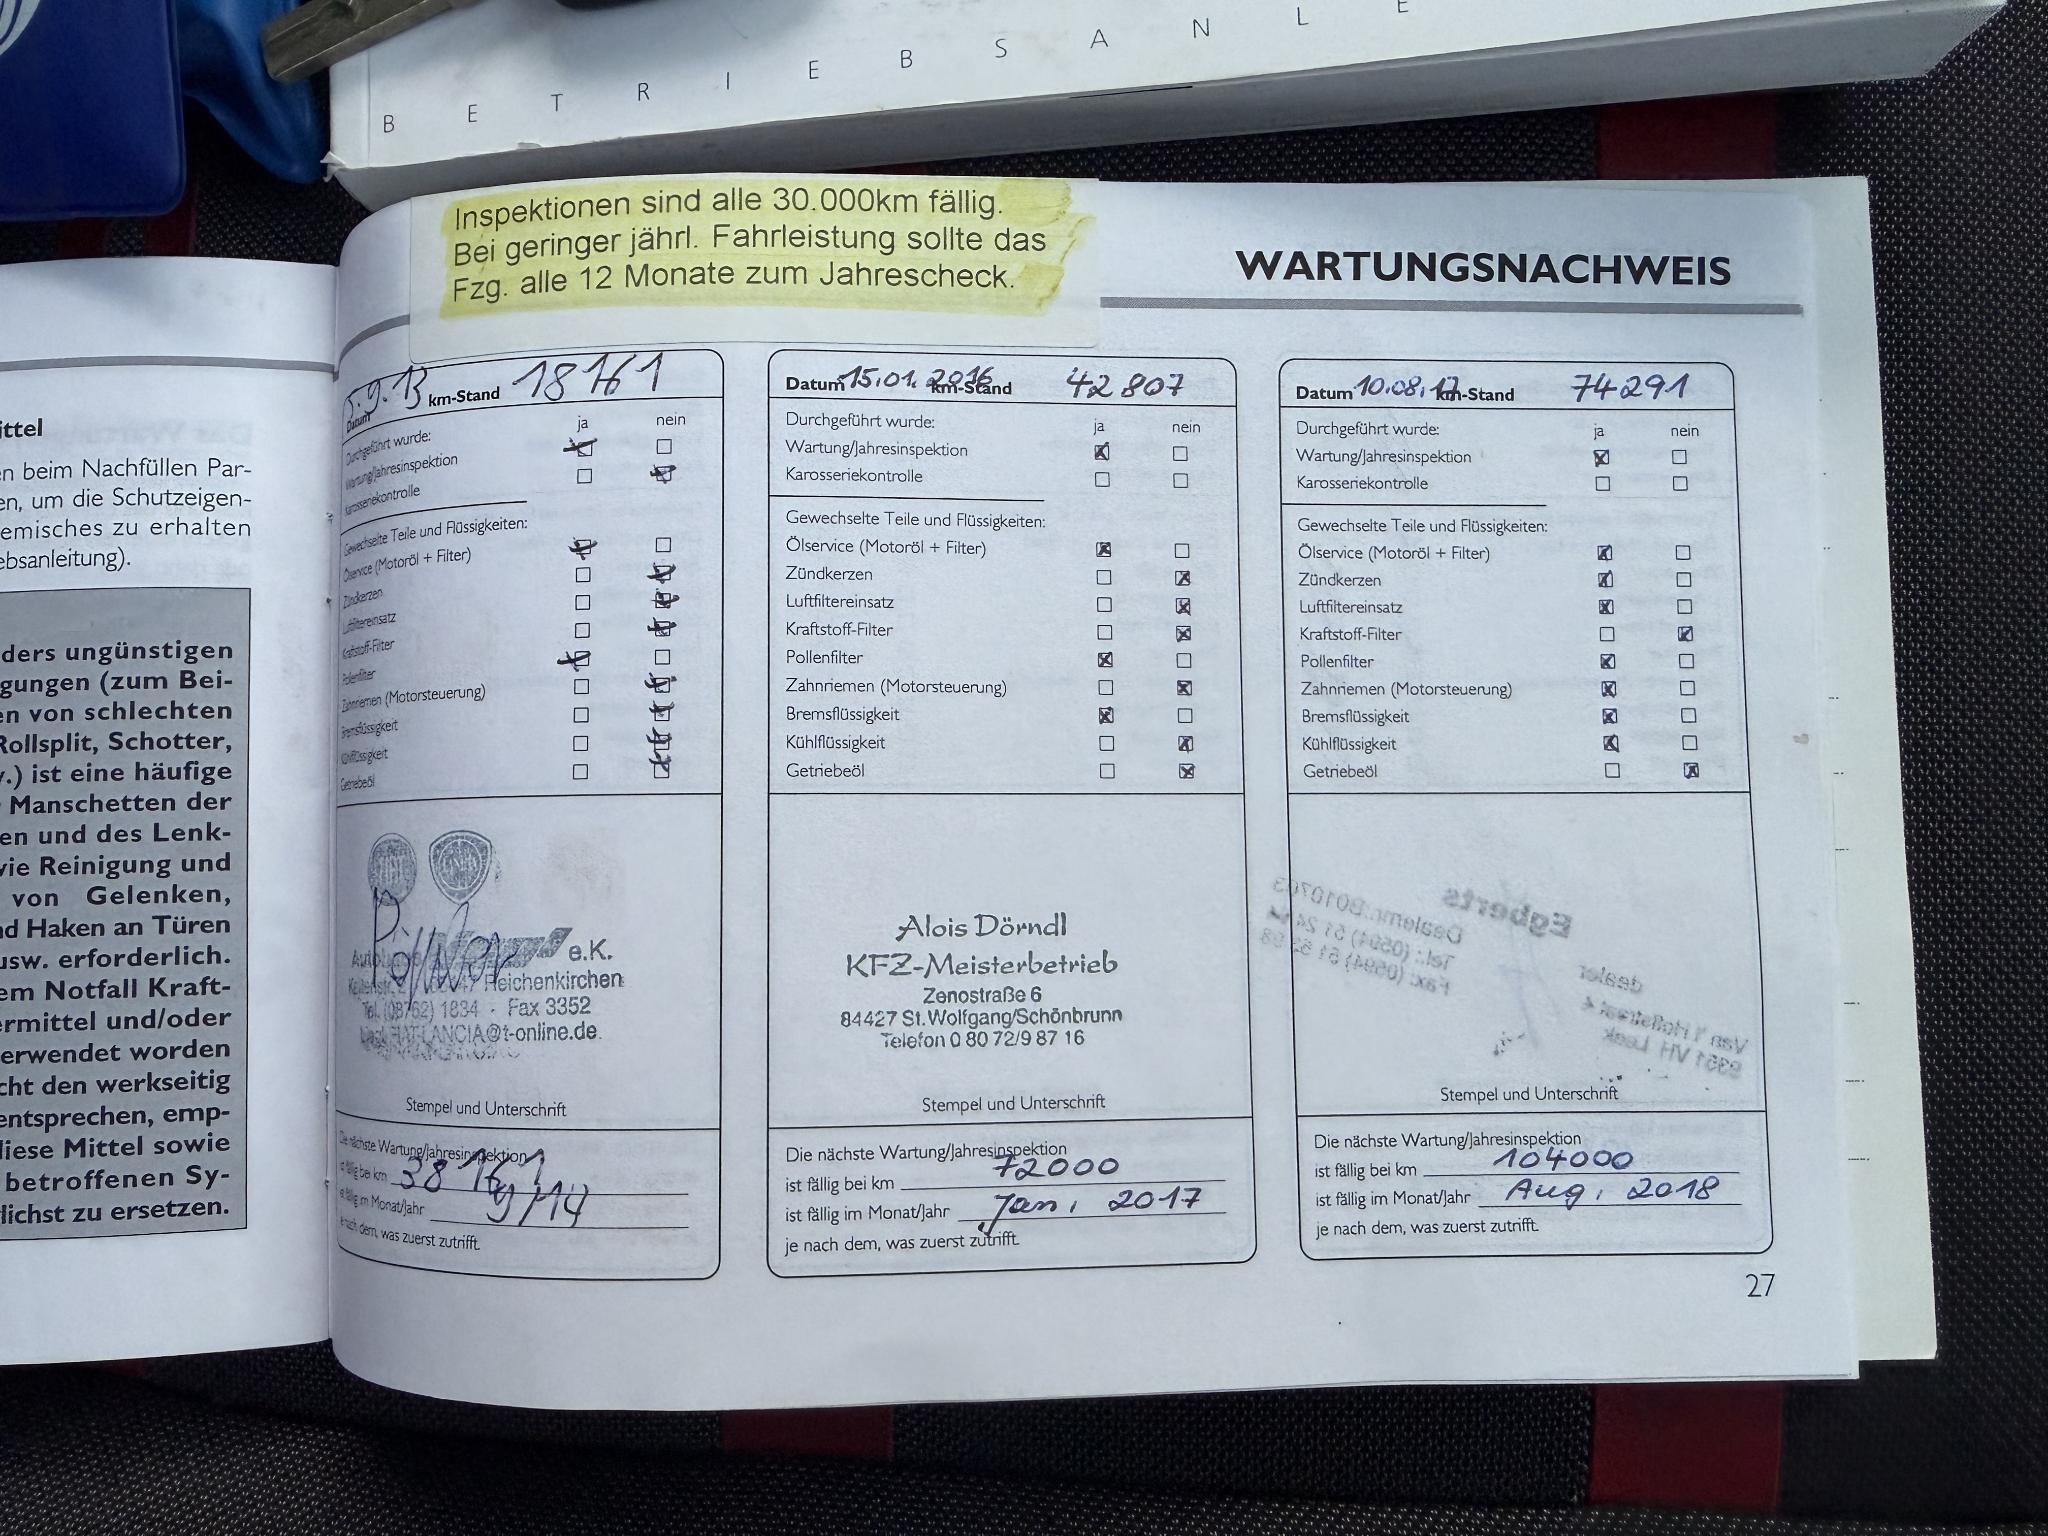 BETRIEBSANLE
Inspektionen sind alle 30.000km fällig.
Bei geringer jährl. Fahrleistung sollte das
Fzg. alle 12 Monate zum Jahrescheck.
WARTUNGSNACHWEIS
ittel
en beim Nachfüllen Par-
en, um die Schutzeigen-
emisches zu erhalten
ebsanleitung).
ders ungünstigen
gungen (zum Bei-
en von schlechten
Rollsplit, Schotter,
v.) ist eine häufige
r Manschetten der
en und des Lenk-
wie Reinigung und
von Gelenken,
nd Haken an Türen
usw. erforderlich.
em Notfall Kraft-
ermittel und/oder
erwendet worden
cht den werkseitig
entsprechen, emp-
diese Mittel sowie
betroffenen Sy-
lichst zu ersetzen.
Datum .9.13 km-Stand 18161
Durchgeführt wurde: ja nein
Wartung/Jahresinspektion
Karosseriekontrolle
Gewechselte Teile und Flüssigkeiten:
Ölservice (Motoröl + Filter)
Zündkerzen
Luftfiltereinsatz
Kraftstoff-Filter
Pollenfilter
Zahnriemen (Motorsteuerung)
Bremsflüssigkeit
Kühlflüssigkeit
Getriebeöl
LANCIA
e.K.
Reichenkirchen
Tel. (08762) 1834 · Fax 3352
FIAT-LANCIA@t-online.de
Stempel und Unterschrift
Die nächste Wartung/Jahresinspektion
ist fällig bei km 38161
ist fällig im Monat/Jahr 9/14
je nach dem, was zuerst zutrifft.
Datum 15.01.2016 km-Stand 42807
Durchgeführt wurde: ja nein
Wartung/Jahresinspektion
Karosseriekontrolle
Gewechselte Teile und Flüssigkeiten:
Ölservice (Motoröl + Filter)
Zündkerzen
Luftfiltereinsatz
Kraftstoff-Filter
Pollenfilter
Zahnriemen (Motorsteuerung)
Bremsflüssigkeit
Kühlflüssigkeit
Getriebeöl
Alois Dörndl
KFZ-Meisterbetrieb
Zenostraße 6
84427 St.Wolfgang/Schönbrunn
Telefon 0 80 72/9 87 16
Stempel und Unterschrift
Die nächste Wartung/Jahresinspektion
ist fällig bei km 72000
ist fällig im Monat/Jahr Jan, 2017
je nach dem, was zuerst zutrifft.
Datum 10.08.17 km-Stand 74291
Durchgeführt wurde: ja nein
Wartung/Jahresinspektion
Karosseriekontrolle
Gewechselte Teile und Flüssigkeiten:
Ölservice (Motoröl + Filter)
Zündkerzen
Luftfiltereinsatz
Kraftstoff-Filter
Pollenfilter
Zahnriemen (Motorsteuerung)
Bremsflüssigkeit
Kühlflüssigkeit
Getriebeöl
Egberts
dealer
Van 't Hoffstraat 4
9351 VH Leek
Tel.: (0594) 51 24
Fax: (0594) 51 53 98
Dealernr.: B010703
Stempel und Unterschrift
Die nächste Wartung/Jahresinspektion
ist fällig bei km 104000
ist fällig im Monat/Jahr Aug, 2018
je nach dem, was zuerst zutrifft.
27